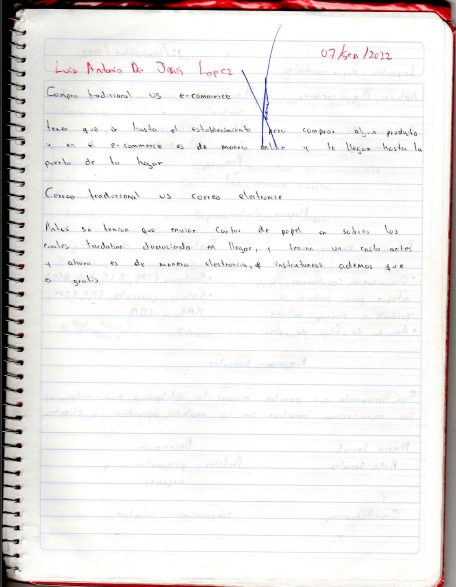 07/sep/2022
Luis Antonio De Jesús Lopez
Compra tradicional vs e-commerce
tener que ir hasta el establecimiento para comprar algun producto
y en el e-commerce es de manera online y te llegan hasta la
puerta de tu hogar
Correo tradicional vs correo electronico
Antes se tenian que enviar cartas de papel en sobres las
cuales tardaban demasiado en llegar, y tenian un costo antes
y ahora es de manera electronica, e instantaneas ademas que
es gratis.